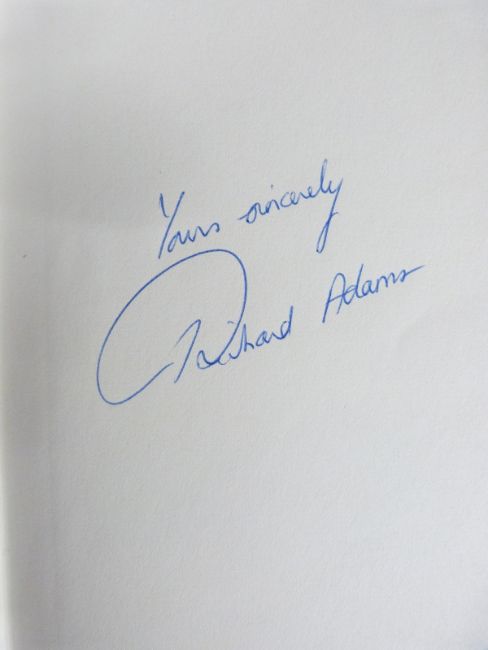 Yours sincerely
Richard Adams